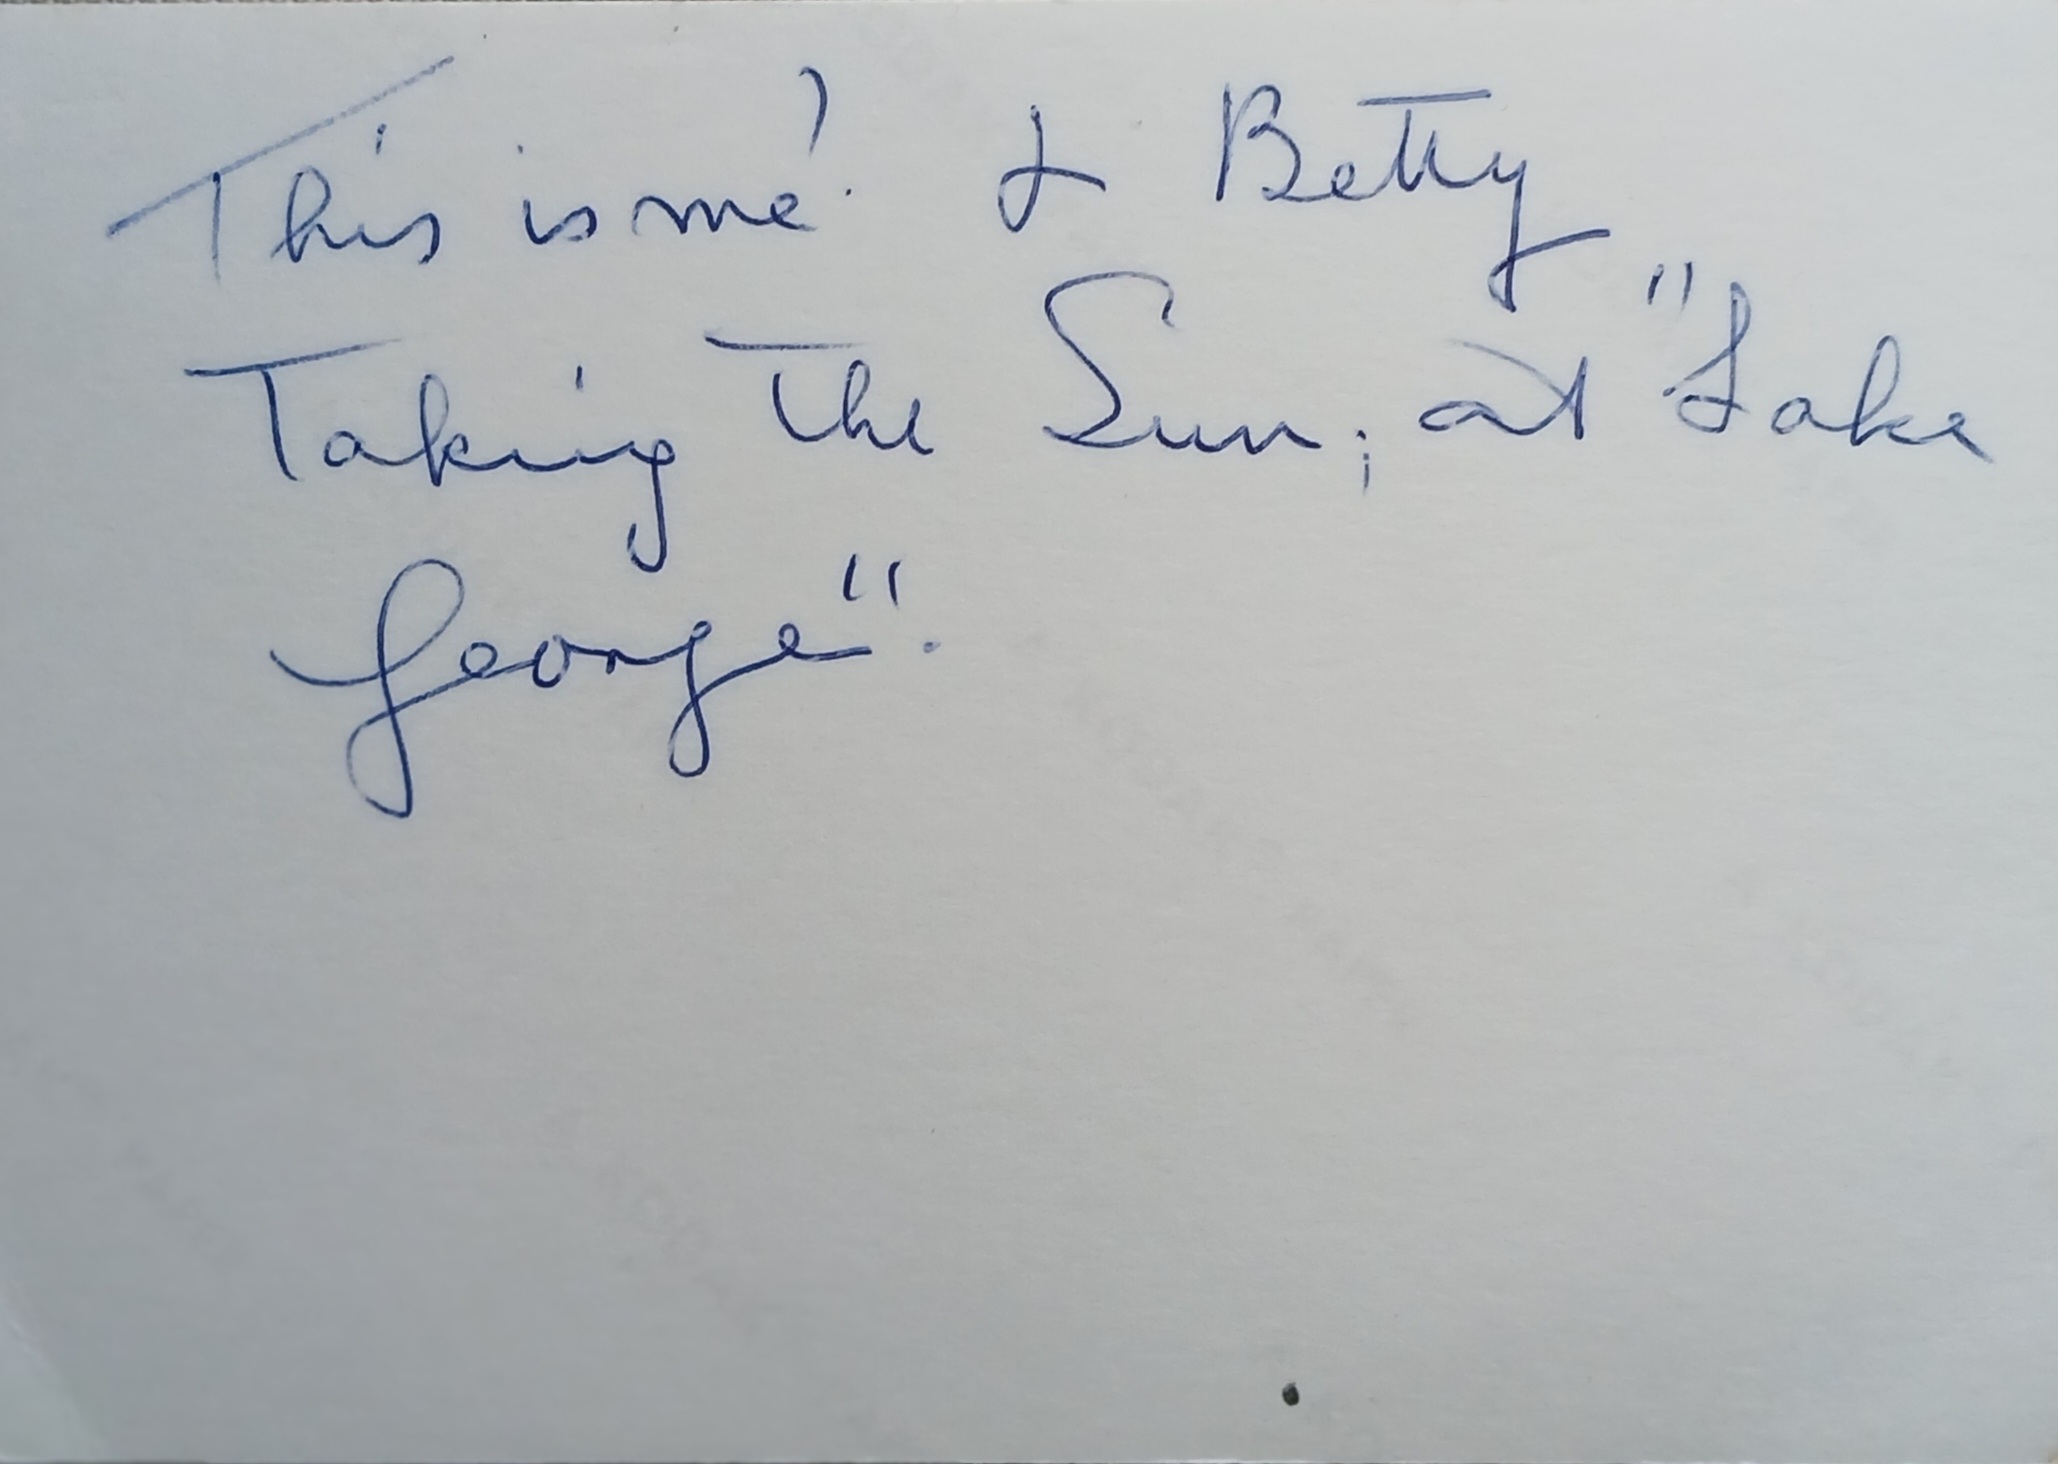 This is me! & Betty
Taking the Sun; at "Lake
George".